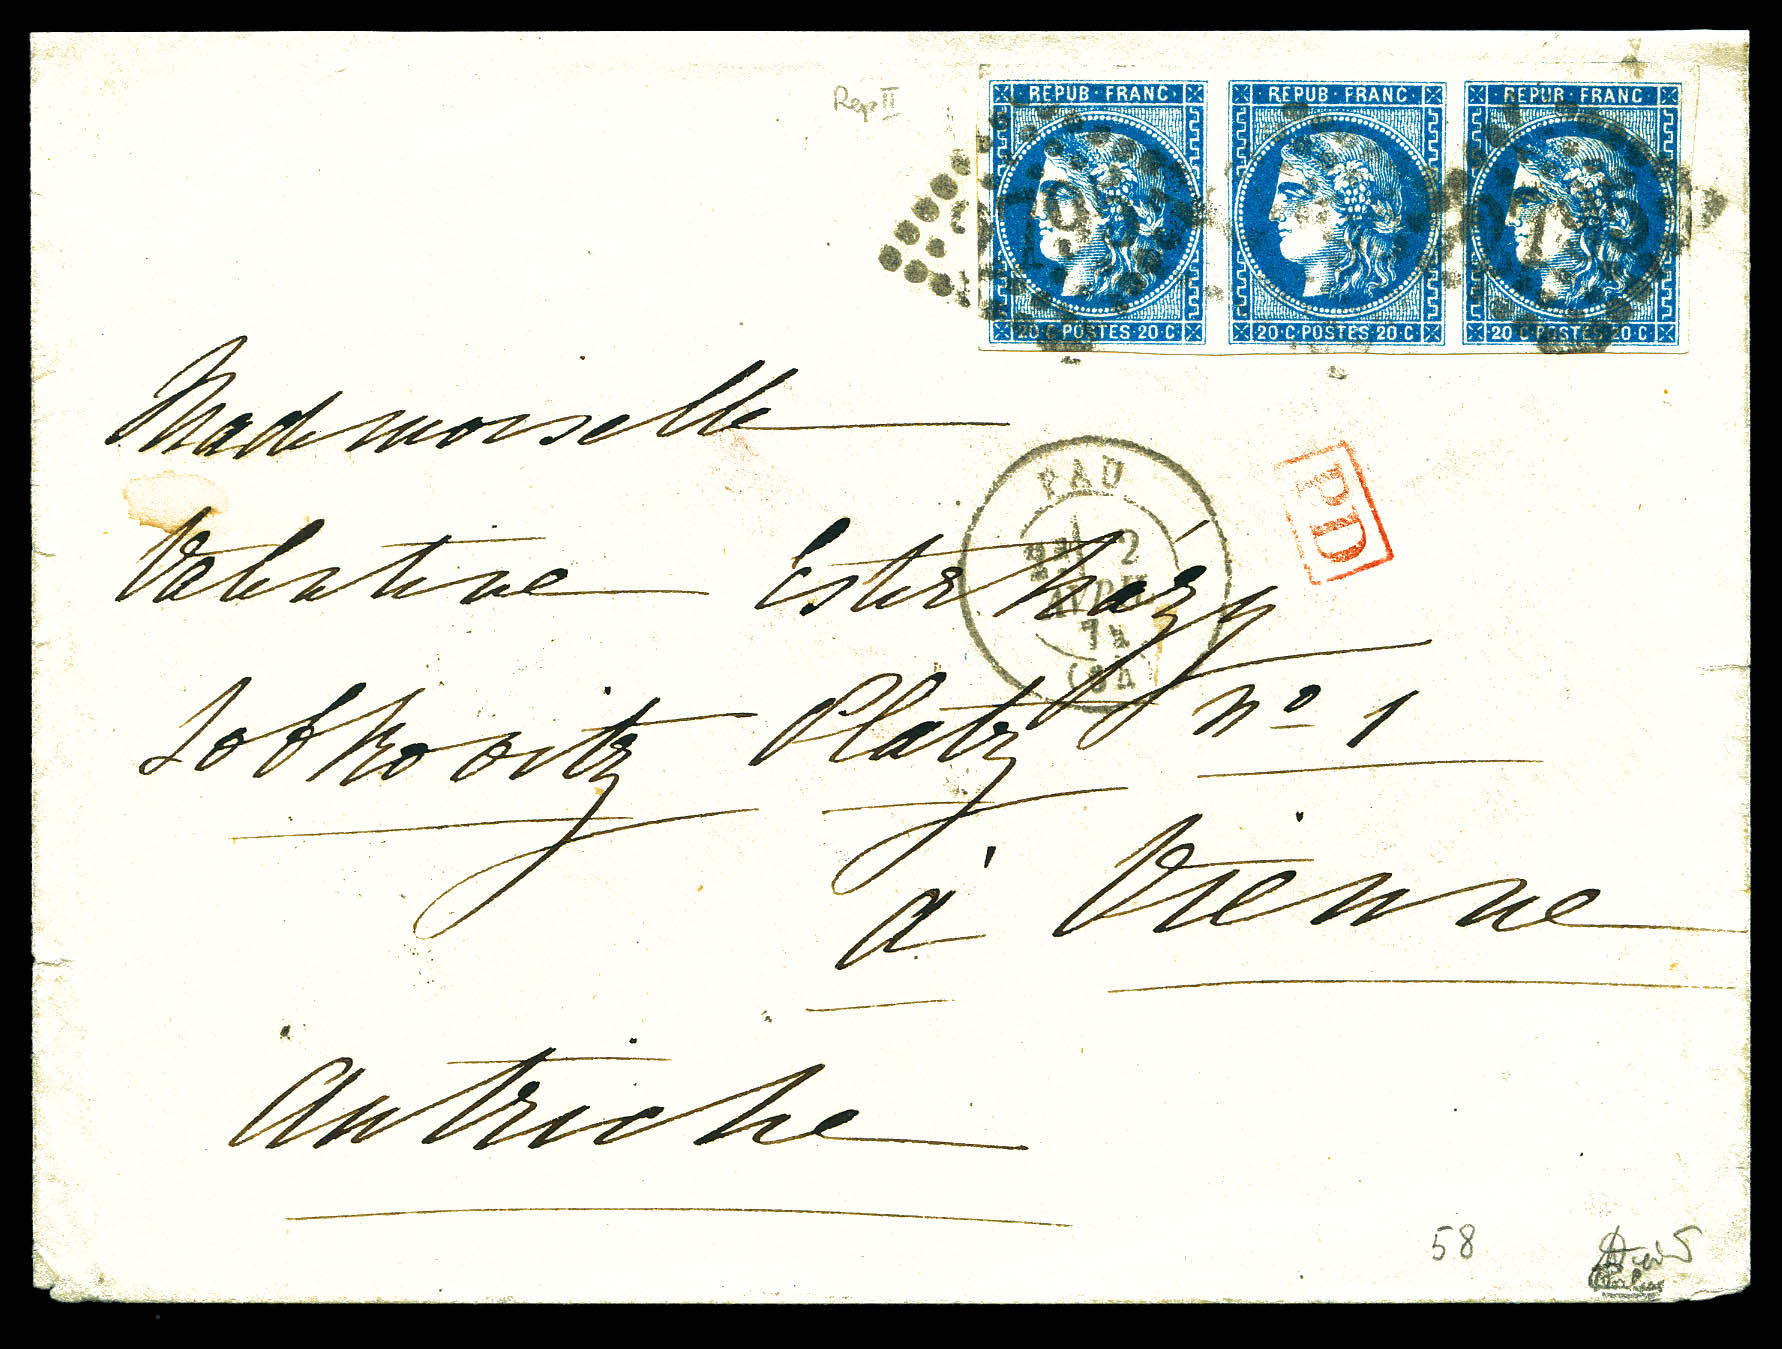 Rep II
REPUB · FRANC REPUB · FRANC REPUB · FRANC
20 · C POSTES · 20 · C 20 · C POSTES · 20 · C 20 · C POSTES · 20 · C
Mademoiselle
PAU
PD
2
AVRIL
71
Valentine Esterházy
Lobkowitz Platz No 1
à Vienne
Autriche
58